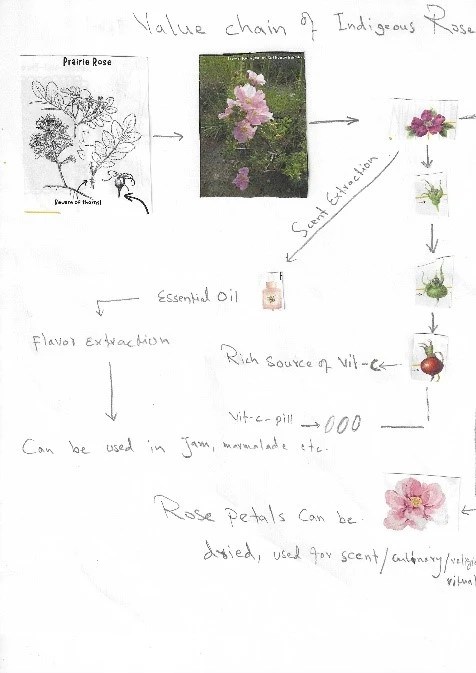 Value chain of Indigeous Rose
Prairie Rose
Beware of thorns!
Scent Extraction
Essential Oil
Flavor Extraction
Rich source of Vit-C
Vit-c-pill
Can be used in Jam, marmalade etc.
Rose petals can be
dried, used for scent/culinary/